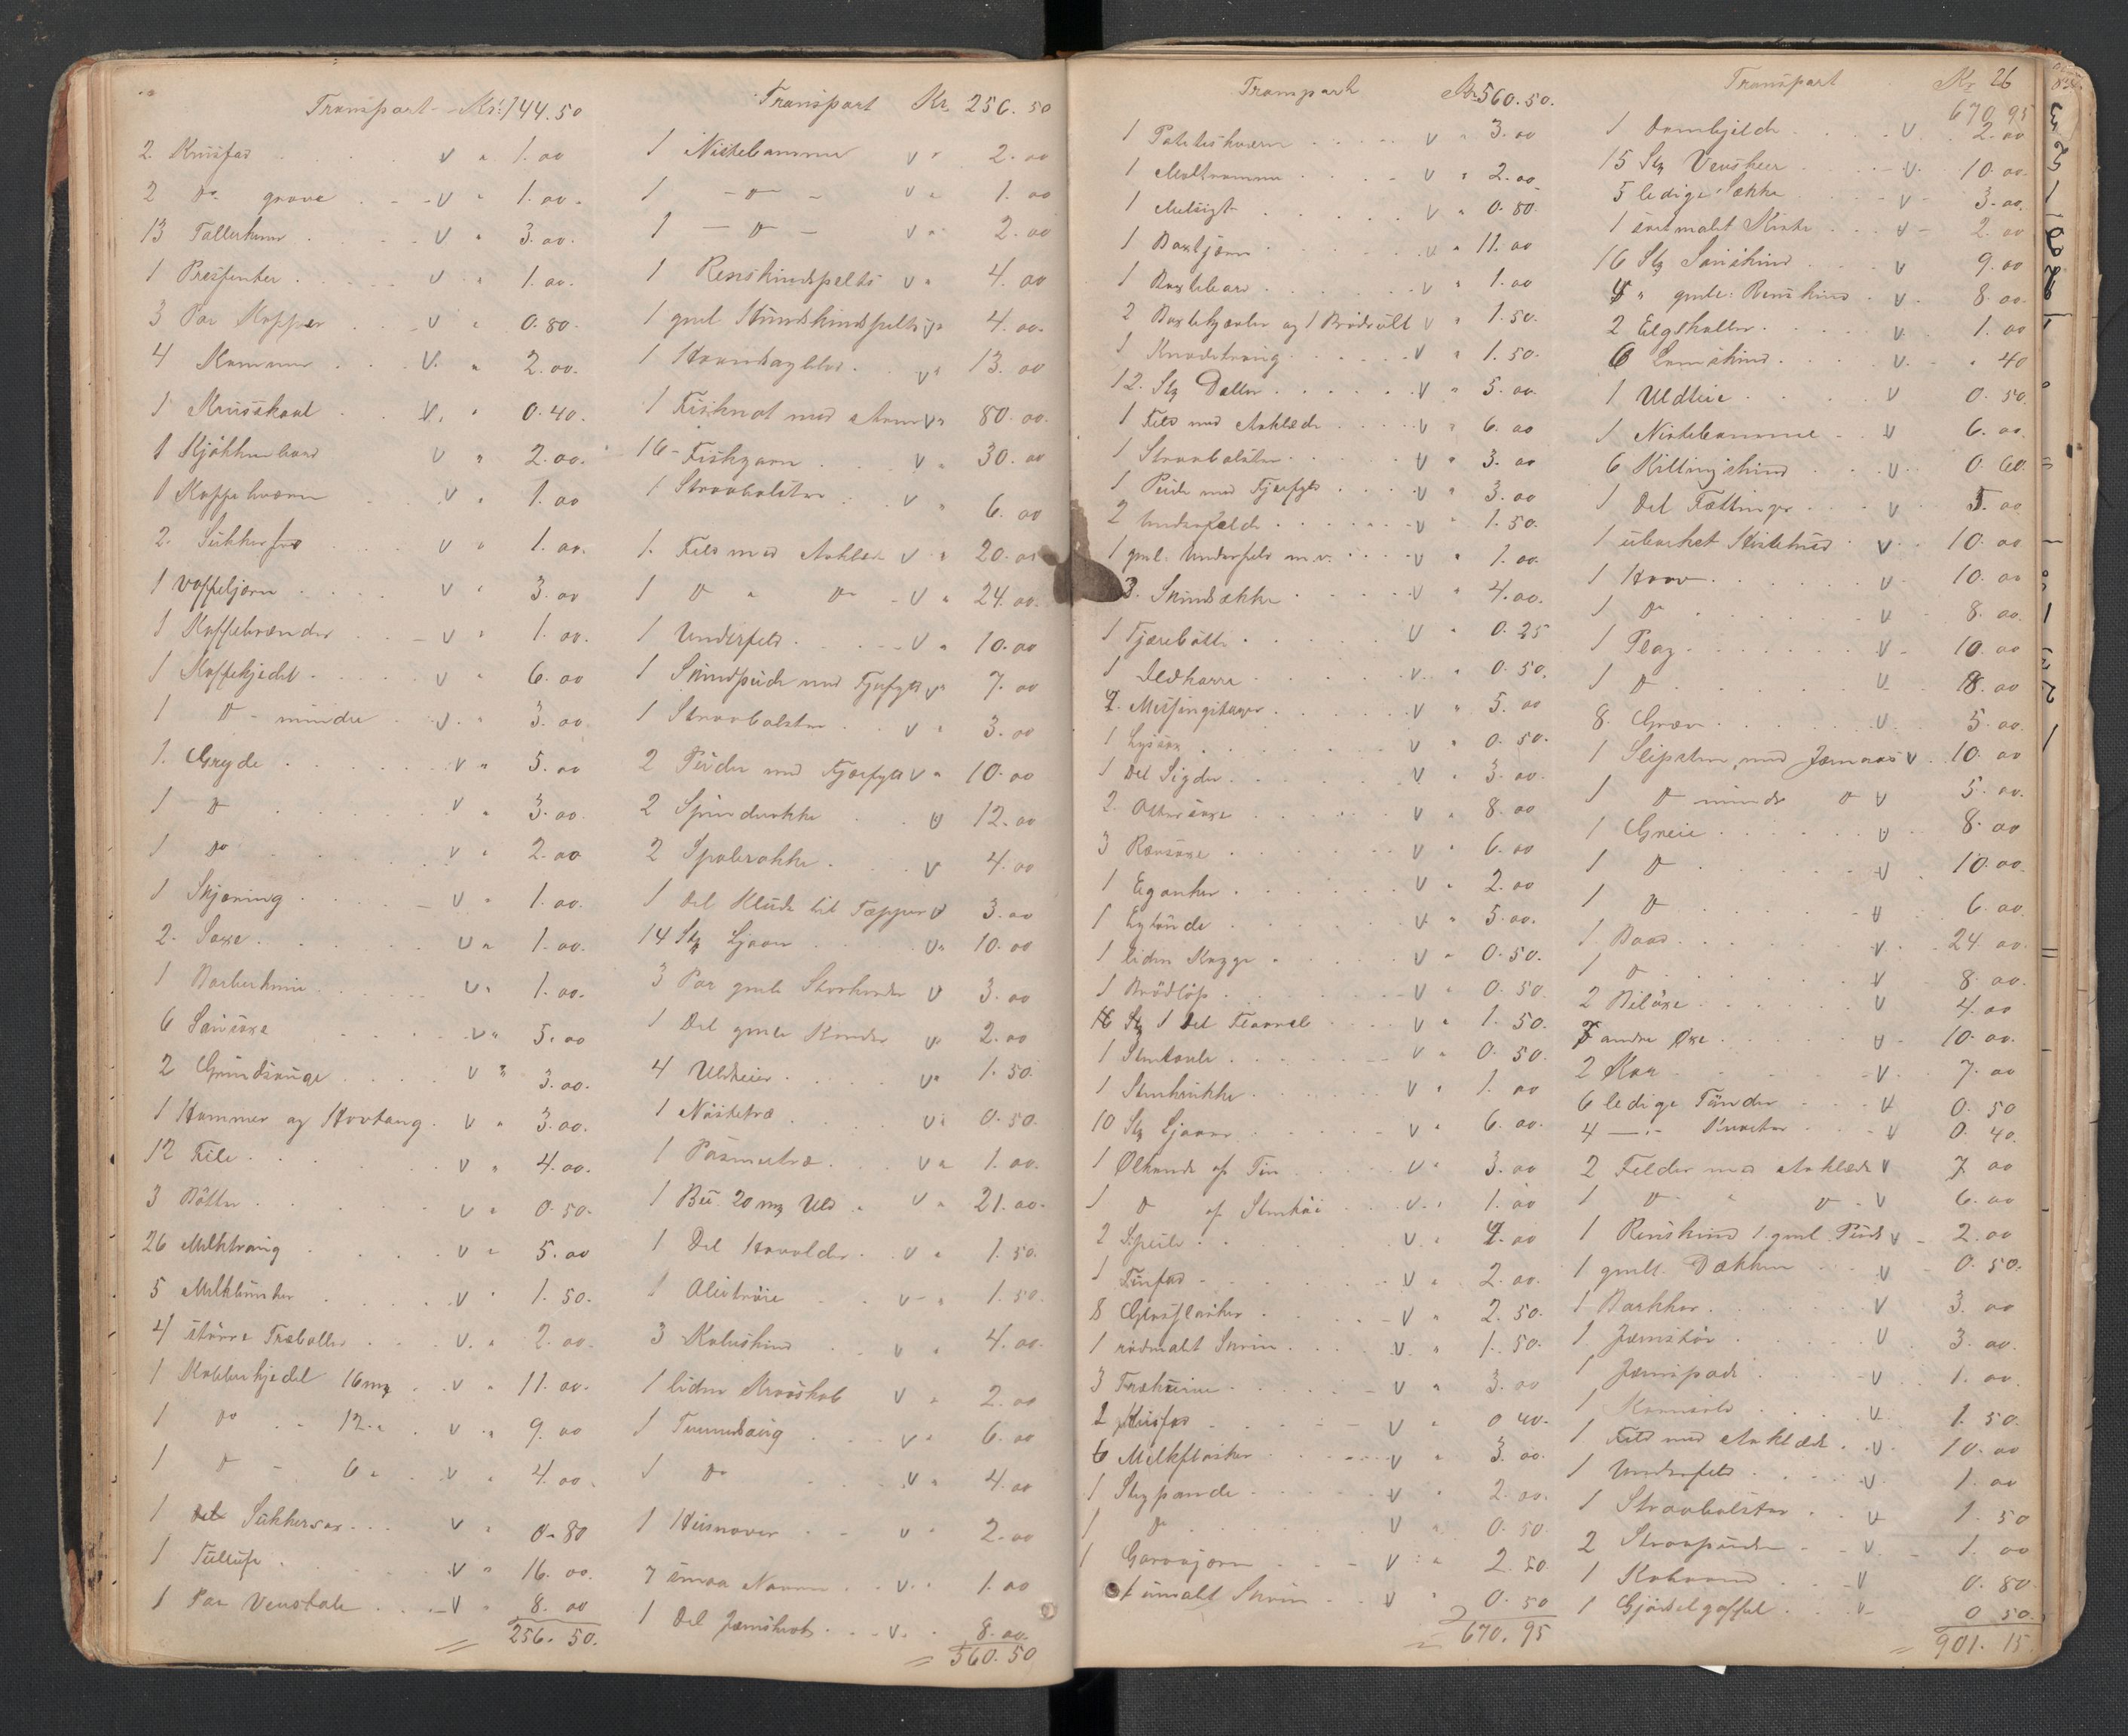 Transport Kr. 144.50
2. Krusfad v " 1.00
2 Do grove v " 1.00.
13 Tallerkener v " 3.00.
1 Presenter v " 1.00.
3 Par Kopper v " 0.80.
4 Kammer v. " 2.00.
1 Krusskaal v. " 0.40.
1 Kjøkkenbord v " 2.00.
1 Kaffekværn v " 1.00
2. Sukkerfad v " 1.00.
1 Vaffeljern v " 3.00
1 Kaffebrænder v " 1.00.
1 Kaffekjedel v " 6.00
1 Do mindre v. " 3.00.
1. Gryde v " 5.00
1 Do v " 3.00.
1 Do v " 2.00
1 Skjæring v " 1.00.
2. Saxe v " 1.00.
1 Barberkniv v " 1.00.
6 Sauesaxe v " 5.00
2 Grindsauge v " 3.00.
1 Hammer og Hovtang v " 3.00.
12 File v " 4.00.
3 Bøtter v " 0.50.
26 Melktraug v " 5.00
5 Melkbunker v " 1.50.
4 større Træboller v. " 2.00.
1 Kobberkjedel 16 mk v " 11.00.
1 Do 12 " v " 9.00
1 Do 6 " v " 4.00.
1 del Sukkersax v " 0.80
1 Tullup v " 16.00.
1 Par Vevstole v " 8.00
256.50.
Transport Kr. 256.50
1 Nistebomme v " 2.00
1 - Do - v " 1.00
1 - Do - v " 2.00
1 Renskindspelts v " 4.00
1 gml Hundskindspelts v " 4.00.
1 Haandsagblad v " 13.00
1 Fiskenot med v " 80.00.
16 - Fiskgarn v " 30.00
1 Straabolster v " 6.00
1. Feld med Aaklæde v " 20.00
1 Do " Do v " 24.00.
1 Underfeld v " 10.00
1 Skindpude med Fjærfyld v " 7.00
1 Straabolster v " 3.00
2 Puder med Fjærfyld v " 10.00
2 Spinderokke v 12.00
2 Spolerokke v 4.00
1 Del Klude til Tæpper v 3.00
14 Stk Ljaaer v " 10.00
3 Par gmle Skor v 3.00
1 Del gmle Karder v 2.00
4 Uldteier v " 1.50.
1 Nøstetræ v " 0.50.
1 Pasmetræ v " 1.00.
1 Bu. 20 mk Uld v " 21.00.
1 Del Hovolder v " 1.50.
1 Olietrøie v " 1.50.
3 Kalveskind v " 4.00.
1 liden Kroskab v " 2.00
1 Tømmersaug v " 6.00
1 Do v " 4.00
1 Husnaver v " 2.00
7 smaa Naver v. " 1.00
1 Del Jernskrot v. " 8.00.
560.50
Transport Kr 560.50.
1 Poteteskværn v " 3.00
1 Maltromme v " 2.00.
1 Melsigt v " 0.80
1 Baxtjern v " 11.00
1 Baxtebord v " 1.00
2 Baxtekjævler og 1 Brødrull v " 1.50.
1 Knadetraug v " 1.50.
12. Stk Daller v " 5.00.
1 Feld med Aaklæde v " 6.00
1 Straabolster v " 3.00
1 Pude med Fjærfyld v " 3.00
2 Underfelde v " 1.50.
1 gml. Underfeld m.v. v " 1.00.
3. Skindsække v " 4.00.
1 Tjærebøtte v " 0.25
1 Ildkarre v. " 0.50.
2 Messingstager v " 5.00
1 Lyssax v " 0.50.
1 Del Sigder v " 3.00.
2 Ottersaxe v " 8.00
3 Rævsaxe v " 6.00
1 Eganker v " 2.00
1 Egtønde v " 5.00.
1 liden Kagge v " 0.50.
1 Brødløp v " 0.50.
16 Stk 1 Del Flaavel v " 1.50.
1 Stentavle v " 0.50.
1 Stenkrukke v " 1.00
10 Stk Ljaaer v " 6.00.
1 Ølkande af Tin v " 3.00
1 Do af Stentøi v. " 1.00
2 Speile v. " 4.00
1 Tinfad v " 2.00.
8 Glasflasker v " 2.50.
1 rødmalt Skrin v. " 1.50.
3 Trækurve v " 3.00
2 Krusfad v " 0.40.
6 Melkflasker v " 3.00.
1 Stegpande v " 2.00.
1 Do v " 0.50
1 Garvajern v " 2.50
1 umalt Skrin v " 0.50
670.95
Transport Kr 26
670.95
1 Dombjelde v. 2.00
15 Stk Vevskeer v. 10.00.
5 ledige Sække v 3.00.
1 sortmalt Kiste v 2.00
16 Stk Saueskind v 9.00
4 " gmle: Renskind v. 8.00.
2 Elgskaller v. 1.00
6 Lamskind v. " 40
1 Uldteie v 0.50.
1 Nistebomme v 6.00.
6 Killingskind v. 0.60.
1 Del Fættinger v 5.00
1 ubarket Hestehud v. 10.00
1 Harv v. 10.00
1 Do v 8.00.
1 Plog v. 10.00
1 Do v 18.00
8. Græv v. 5.00.
1 Slipsten med Jernaas v. 10.00
1 Do mindre Do v 5.00.
1 Greie v 8.00
1 Do v. 10.00.
1 Do v 6.00
1 Baad v. 24.00.
1 Do v 8.00.
2 Biløxe v 4.00
7 andre Øxe v 10.00.
2 Kar v. 7.00
6 ledige Tønder v 0.50
4 —"— Kvarter v 0.40.
2 Felder med Aaklæde v 7.00
1 Do " Do v 6.00
1 Renskind 1 gml. Pude v 2.00
1 gmelt Dækken v 0.50.
1 Barkkar v 3.00
1. Jernstør v. 3.00.
1 Jernspade v. 1.00.
1 Kornsold v. 1.50.
1 Feld med Aaklæde v. 10.00
1 Underfeld v. 1.00
1 Straabolster v 1.50
2 Straapuder v. 1.00
1 v 0.80
1 Gjødselgaffel v 0.50.
901.15.